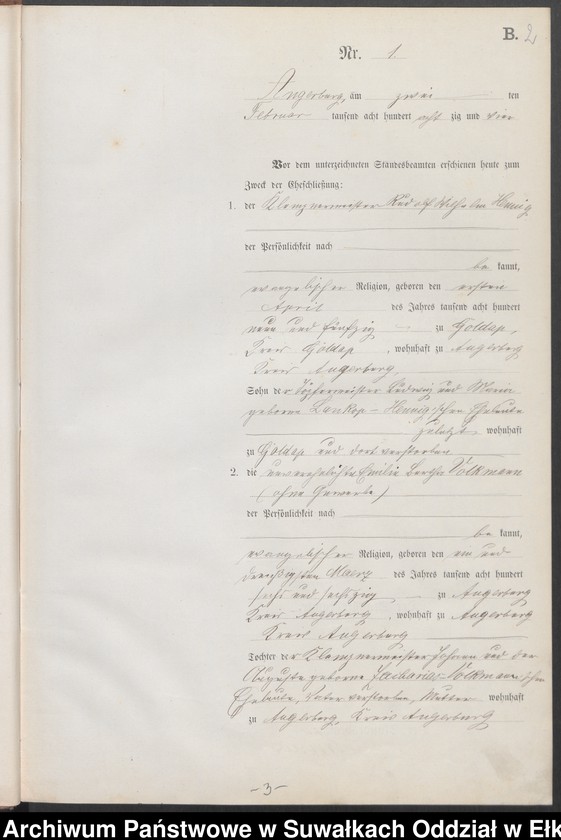 B. 2
Nr. 1
Angerburg, am zwei ten
Februar tausend acht hundert acht zig und vier
Vor dem unterzeichneten Standesbeamten erschienen heute zum
Zweck der Eheschließung:
1. der Klempnermeister Rudolf Wilhelm Hennig
der Persönlichkeit nach
be kannt,
evangelischer Religion, geboren den ersten
April des Jahres tausend acht hundert
neun und fünfzig zu Goldap,
Kreis Goldap, wohnhaft zu Angerburg
Kreis Angerburg
Sohn der Töpfermeister Ludwig und Maria
geborne Lankop-Hennig'schen Eheleute
zuletzt wohnhaft
zu Goldap und dort verstorben
2. die unverehelichte Emilie Bertha Volkmann
(ohne Gewerbe)
der Persönlichkeit nach
be kannt,
evangelischer Religion, geboren den ein und
dreißigsten Maerz des Jahres tausend acht hundert
sechs und sechszig zu Angerburg
Kreis Angerburg, wohnhaft zu Angerburg
Kreis Angerburg
Tochter der Klempnermeister Johann und der
Auguste geborne Zacharias-Volkmann'schen
Eheleute, Vater verstorben, Mutter wohnhaft
zu Angerburg, Kreis Angerburg
-3-
Archiwum Państwowe w Suwałkach Oddział w Ełk